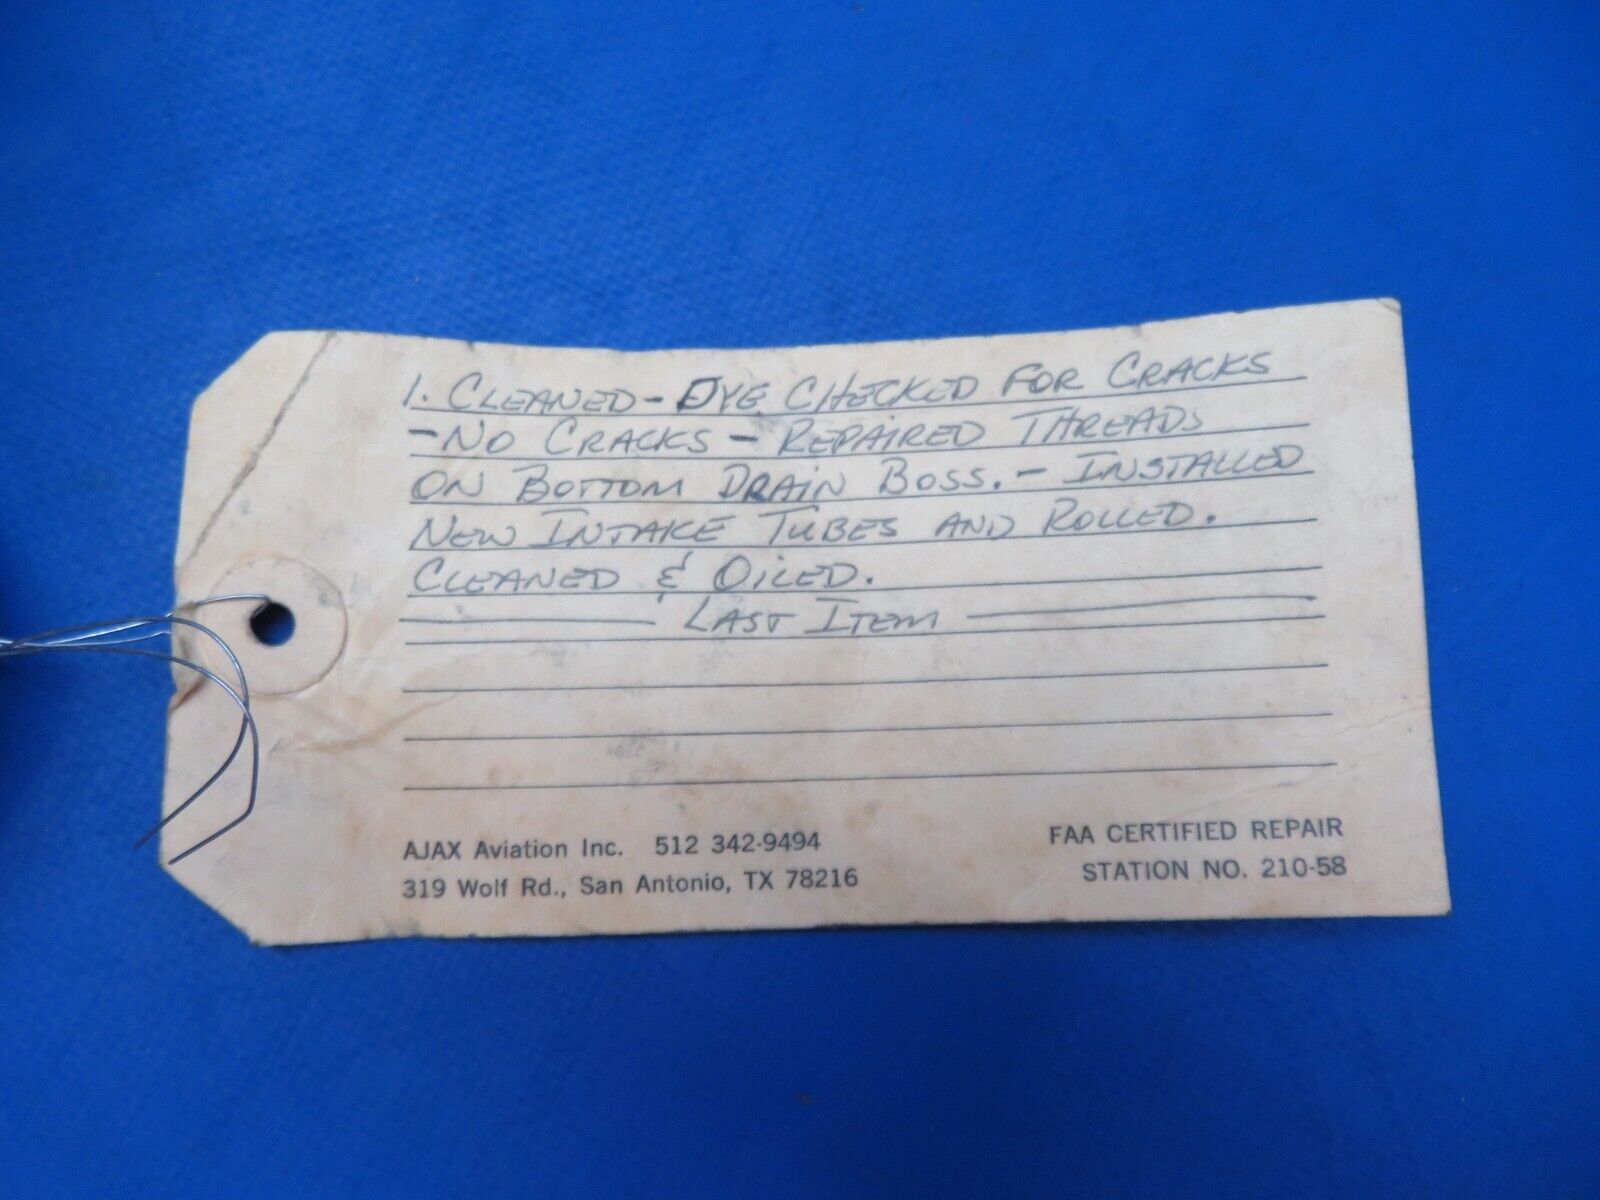 1. CLEANED - DYE CHECKED FOR CRACKS
- NO CRACKS - REPAIRED THREADS
ON BOTTOM DRAIN BOSS. - INSTALLED
NEW INTAKE TUBES AND ROLLED.
CLEANED & OILED.
LAST ITEM
AJAX Aviation Inc. 512 342-9494
319 Wolf Rd., San Antonio, TX 78216
FAA CERTIFIED REPAIR
STATION NO. 210-58